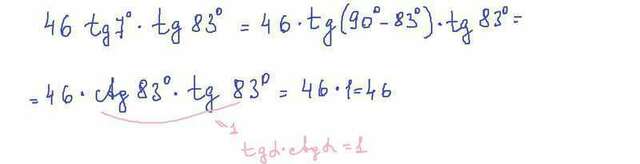 46 tg7°· tg 83° = 46·tg(90°-83°)·tg 83°=
=46· ctg 83°· tg 83° = 46·1=46
1
tgα·ctgα=1